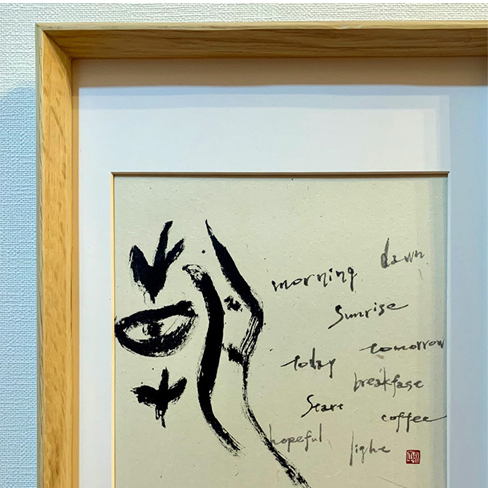 morning dawn
sunrise
today tomorrow
breakfast
start coffee
hopeful light